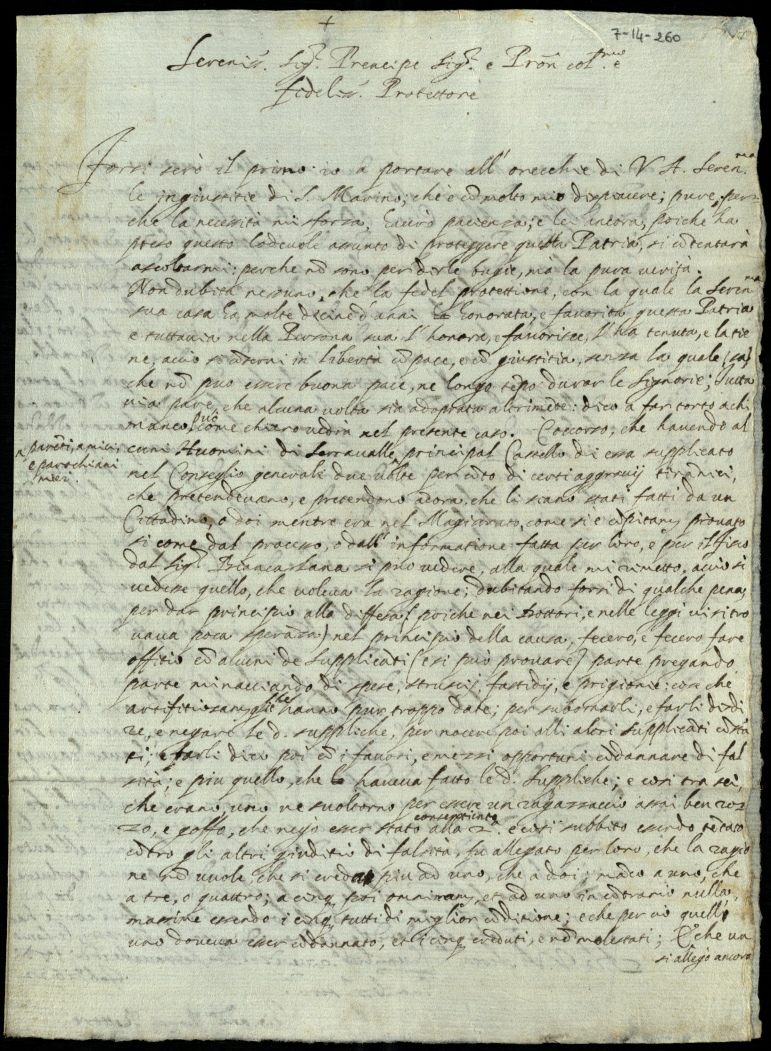 +
7-14-260
Sereniss. Sig.r Prencipe Sig.r e Pron col.mo e
fideliss. Protettore
Forsi serò il primo io a portare all' orecchie di V A. Seren.ma
le ingiustitie di S. Marino, che è cõ molto mio dispiacere; pure, per
che la necessità mi sforza, haverò pacienza; e lei ancora, poiche ha
preso questo lodevole assunto di proteggere questa Patria, si cõtentarà
ascoltarmi: perche nõ sono per dirle bugie, ma la pura verità.
Non dubita nessuno, che la fedel protettione, con la quale la Seren.ma
sua casa ha molte decine d'anni honorata, e favorita questa Patria
e tuttavia nella Persona sua l'honora, e favorisce, l'ha tenuta, e la tie
ne, acciò si cõservi in libertà cõ pace, e cõ giustitia, senza la quale (sa)
che nõ può essere buona pace, ne longo tẽpo durar le Signorie; Tutta
via pare, che alcuna volta sia adoprata altrimẽte: dico a far torto a chi
manco può, come chiaro vedrà nel presente caso. Occorso, che havendo al
a parẽti, amici,
e parochiani
miei
cuni Huomini di Serravalle principal Castello di essa supplicato
nel Conseglio generale due volte per cõto di certi aggravij tirãnici,
che pretendevano, e pretendono adora, che li siano stati fatti da un
Cittadino, o doi mentre era nel Magistrato, come si è cõpitam.te provato
si come dal processo, o dall' informatione fatta per loro, e per il fisco
dal Sig.r si può vedere, alla quale mi rimetto, acciò si
vedesse quello, che voleva la ragione; dubitando forsi di qualche pena,
per dar principio alla diffesa (poiche nei Dottori, e nelle leggi vi si tro
vava poca sperãza) nel principio della causa, fecero, e fecero fare
offitio cõ alcuni de Supplicãti (e si può provare) parte pregando
parte minacciando di spese, strusij, fastidij, e prigionie: cose che
artifitiosam.te gli hanno pur troppo date; per subornarli, e farli disdi
re, e negare le d. suppliche, per nocere poi alli altri supplicãti cõstã
ti; e farli dico poi cõ i favori, e mezzi opportuni cõdannare di fal
sità; e più quello, che haveva fatto le d.e Suppliche; e così tra sei,
che erano, uno ne svoltorno per essere un ragazzaccio assai ben roz
zo, e goffo, che negò esser stato consentiente alla 2.a e così subbito essendo tẽtato
cõtro gli altri giuditio di falsità, fu allegato per loro, che la ragio
ne nõ vuole che si creda più ad uno, che a doi; mãco a uno, che
a tre, o quattro; a cinq. poi et ad uno in cõtrario nulla,
massime essendo i cinq. tutti di miglior cõditione; e che per ciò quello
uno doveva esser cõdannato, et i cinq. creduti, e nõ molestati; E che un
si allegò ancora